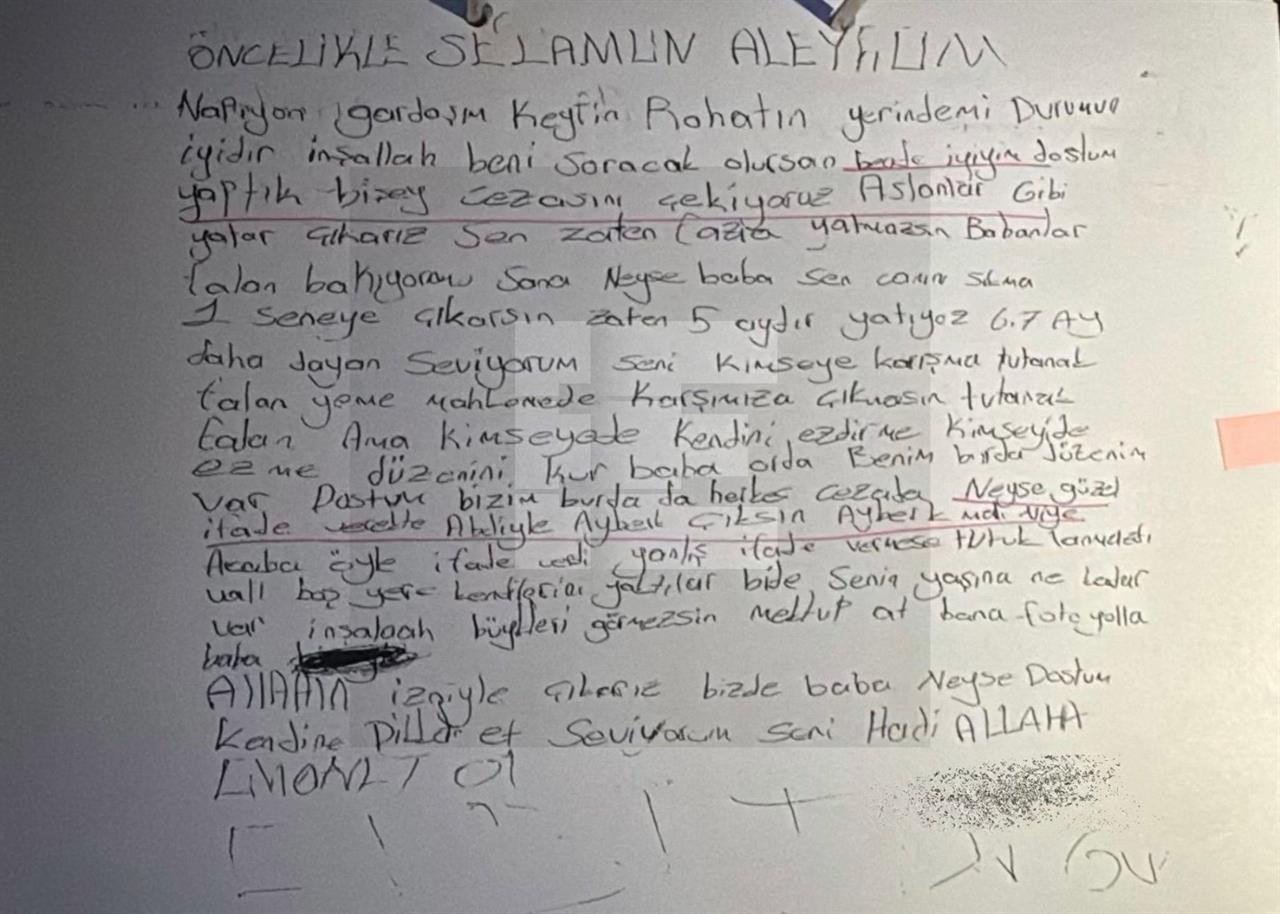 ÖNCELİKLE SELAMUN ALEYKUM
Napıyon gardaşım Keyfin Rahatın yerindemi Durumun
iyidir inşallah beni soracak olursan bende iyiyim dostum
yaptık bizey cezasını çekiyoruz Aslanlar Gibi
yatar çıkarız Sen zaten fazla yatmazsın Babanlar
falan bakıyorsa Sana Neyse baba sen canın sıkma
1 seneye çıkarsın zaten 5 aydır yatıyoz 6.7 AY
daha dayan Seviyorum seni Kimseye karışma tutanak
falan yeme mahkemede Karşımıza çıkmasın tutanak
falan Ama kimseyede Kendini ezdirme kimseyide
ezme düzenini kur baba orda Benim burda düzenim
var Dostum bizim burda da herkes cezada Neyse güzel
ifade Abdiyle Ayberk Çıksın Ayberk niye
Acaba öyle ifade verdi yanlış ifade vermese tutuklanmazdı
vall boş yere kendilerini yaktılar bide Senin yaşına ne kadar
var inşalaah büyükleri görmezsin mektup at bana foto yolla
baba
ALLAHIN izniyle çıkarız bizde baba Neyse Dostum
Kendine Dikkat et Seviyorum seni Hadi ALLAHA
EMONET Ol